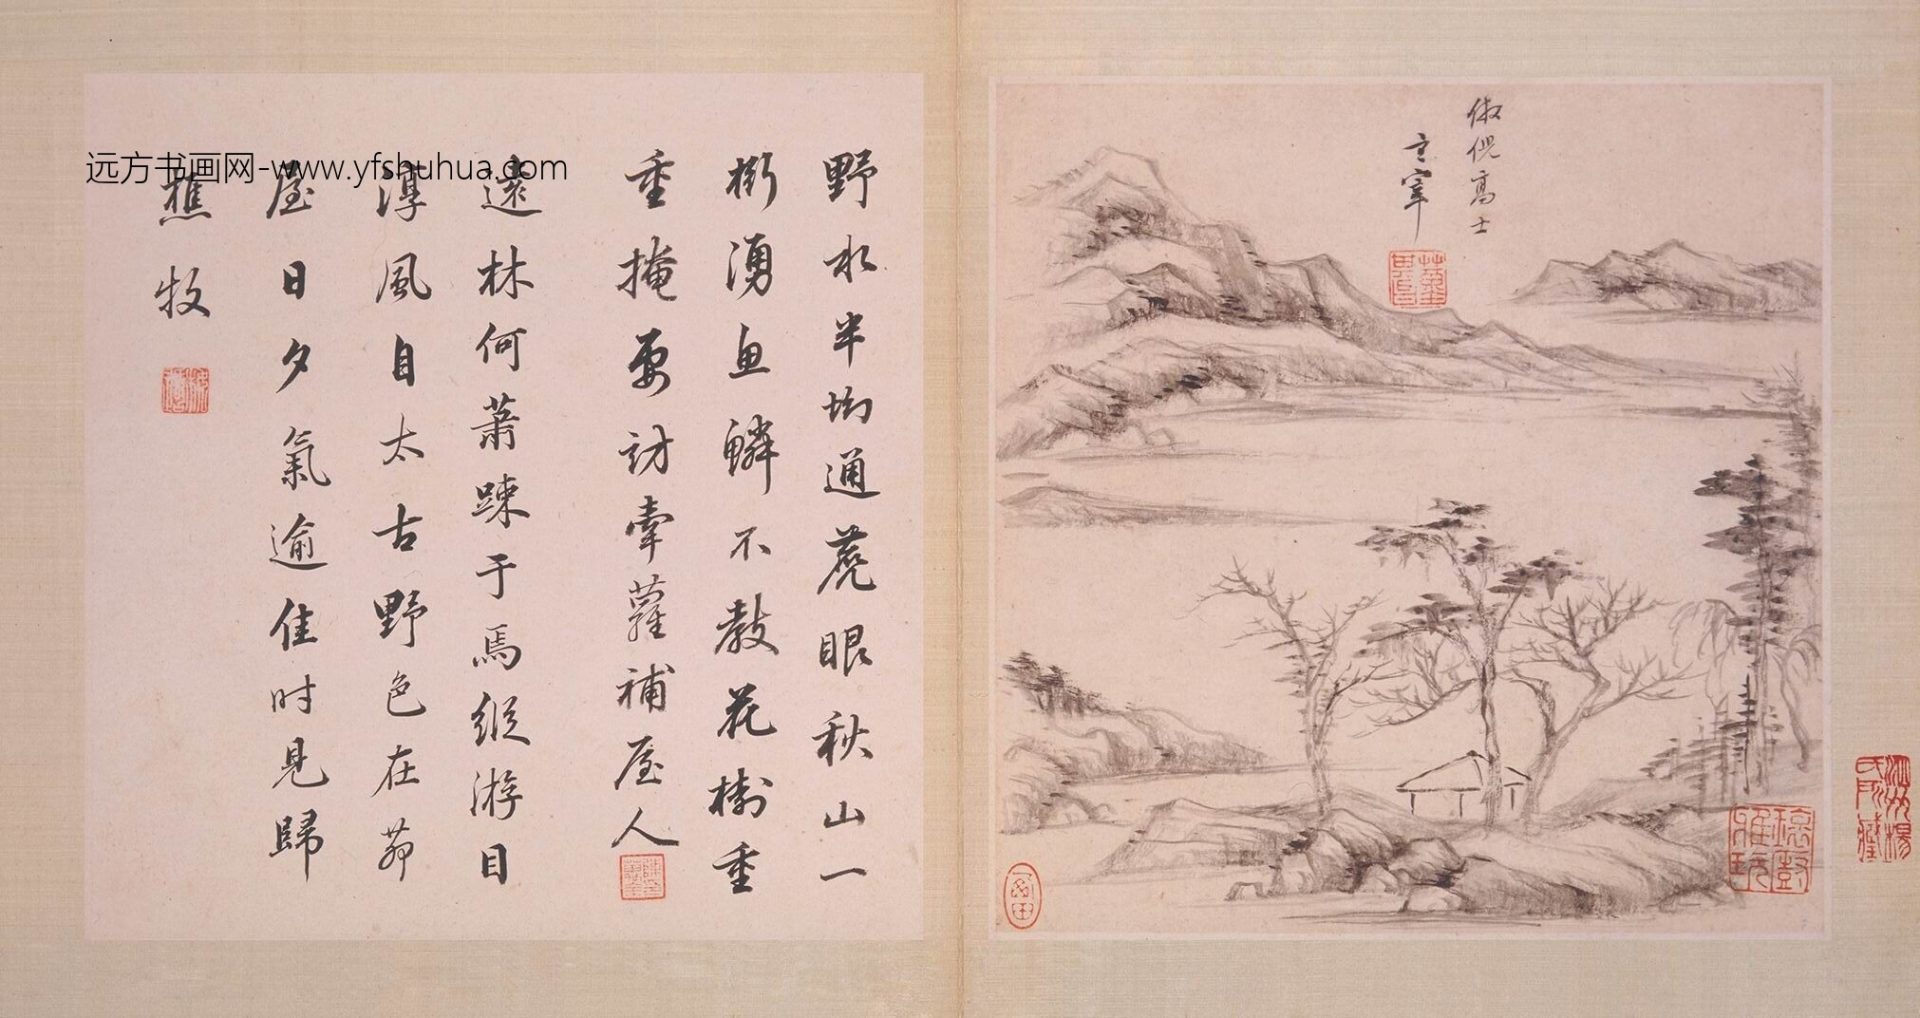 倣倪高士
玄宰
野水半坳通虎眼秋山一
桁湧魚鱗不教花樹重
重掩要訪牽蘿補屋人
遠林何蕭踈于焉縱游目
淳風自太古野色在茆
屋日夕氣逾佳时見歸
樵牧
远方书画网-www.yfshuhua.com